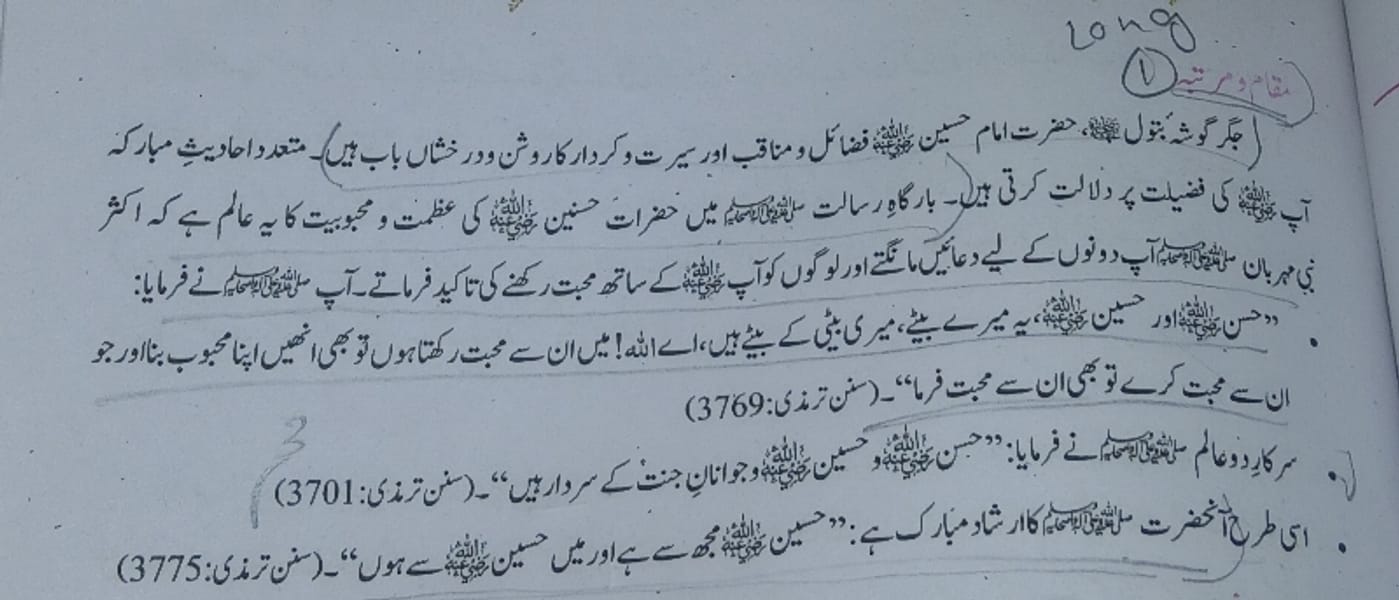 Long
مقام و مرتبہ ①
(جگر گوشۂ بتول ﷞، حضرت امام حسین ﷜ فضائل و مناقب اور سیرت و کردار کا روشن و درخشاں باب ہیں)۔ متعدد احادیثِ مبارکہ
آپ ﷜ کی فضیلت پر دلالت کرتی ہیں۔ بارگاہِ رسالت ﷺ میں حضرات حسنین ﷜ کی عظمت و محبوبیت کا یہ عالم ہے کہ اکثر
نبی مہربان ﷺ آپ دونوں کے لیے دعائیں مانگتے اور لوگوں کو آپ ﷜ کے ساتھ محبت رکھنے کی تاکید فرماتے۔ آپ ﷺ نے فرمایا:
• ”حسن ﷜ اور حسین ﷜، یہ میرے بیٹے، میری بیٹی کے بیٹے ہیں، اے اللہ! میں ان سے محبت رکھتا ہوں تو بھی انھیں اپنا محبوب بنا اور جو
ان سے محبت کرے تو بھی ان سے محبت فرما“۔ (سنن ترمذی: 3769)
3
• سرکارِ دو عالم ﷺ نے فرمایا: ”حسن ﷜ و حسین ﷜ و جوانانِ جنت کے سردار ہیں“۔ (سنن ترمذی: 3701)
• اسی طرح آنحضرت ﷺ کا ارشاد مبارک ہے: ”حسین ﷜ مجھ سے ہے اور میں حسین ﷜ سے ہوں“۔ (سنن ترمذی: 3775)